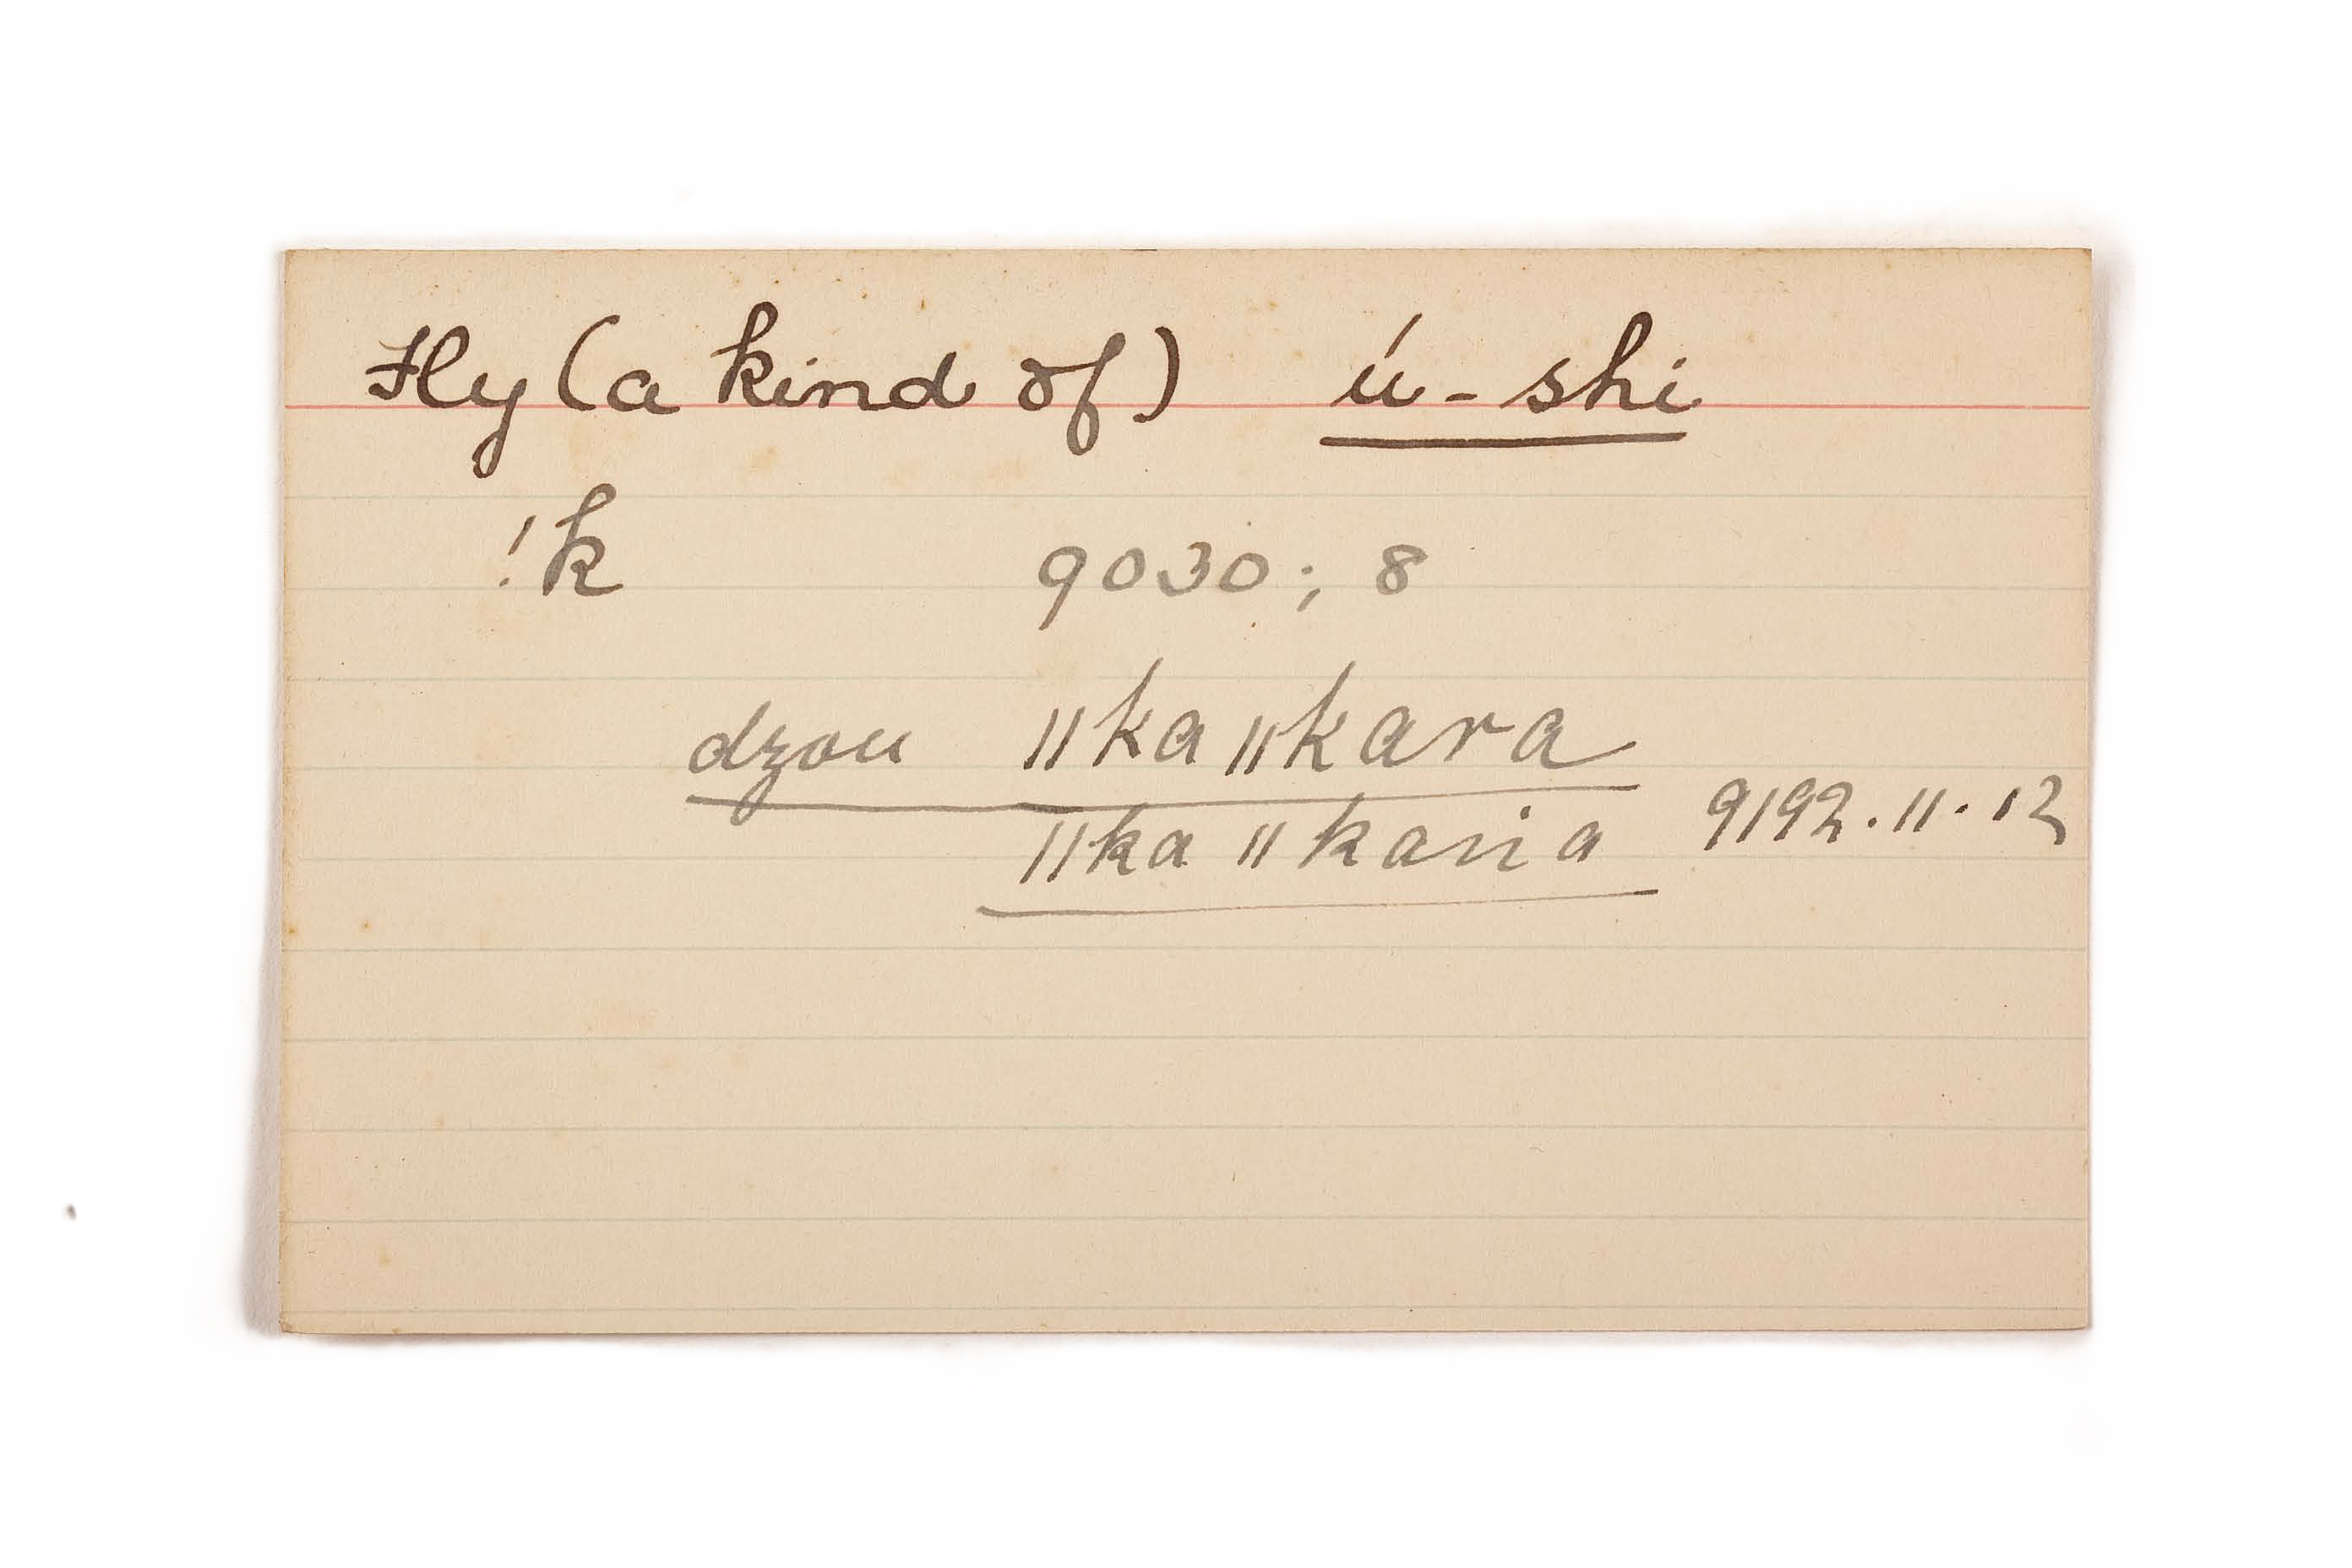 Fly (a kind of) ú-shi
!k 9030; 8
dzou ǁkaǁkara
ǁka ǁkaria 9192.11.12